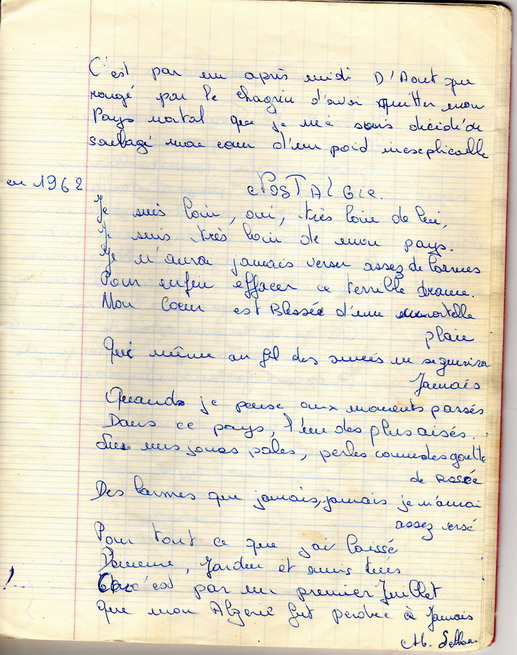 C'est par un après midi D'Aout que
rongé par le chagrin d'avoir quitter mon
Pays natal que je me suis décidé de
soulagé mon cœur d'un poid inexsplicable
en 1962
NOSTALGIE.
Je suis loin, oui, très loin de lui,
Je suis très loin de mon pays.
Je n'aurai jamais verser assez de larmes
Pour enfin effacer ce terrible drame.
Mon Cœur est Blessée d'une mortelle
plaie
Qui même au fil des années ne se guerrira
Jamais
Quands je pense aux moments passés
Dans ce pays, l'un des plus aisés.
Sur mes joues pales, perles comme des goutte
de Rosée
Des larmes que jamais, jamais je n'aurai
assez versé
Pour tout ce que j'ai laissé
Jardin et amis tués
c'est par un premier Juillet
que mon Algerie fut perdue à Jamais